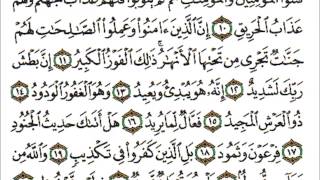 فَتَنُوا۟ ٱلْمُؤْمِنِينَ وَٱلْمُؤْمِنَٰتِ ثُمَّ لَمْ يَتُوبُوا۟ فَلَهُمْ عَذَابُ جَهَنَّمَ وَلَهُمْ
عَذَابُ ٱلْحَرِيقِ ١٠ إِنَّ ٱلَّذِينَ ءَامَنُوا۟ وَعَمِلُوا۟ ٱلصَّٰلِحَٰتِ لَهُمْ
جَنَّٰتٌ تَجْرِى مِن تَحْتِهَا ٱلْأَنْهَٰرُ ذَٰلِكَ ٱلْفَوْزُ ٱلْكَبِيرُ ١١ إِنَّ بَطْشَ
رَبِّكَ لَشَدِيدٌ ١٢ إِنَّهُۥ هُوَ يُبْدِئُ وَيُعِيدُ ١٣ وَهُوَ ٱلْغَفُورُ ٱلْوَدُودُ ١٤
ذُو ٱلْعَرْشِ ٱلْمَجِيدُ ١٥ فَعَّالٌ لِّمَا يُرِيدُ ١٦ هَلْ أَتَىٰكَ حَدِيثُ ٱلْجُنُودِ
١٧ فِرْعَوْنَ وَثَمُودَ ١٨ بَلِ ٱلَّذِينَ كَفَرُوا۟ فِى تَكْذِيبٍ ١٩ وَٱللَّهُ مِن